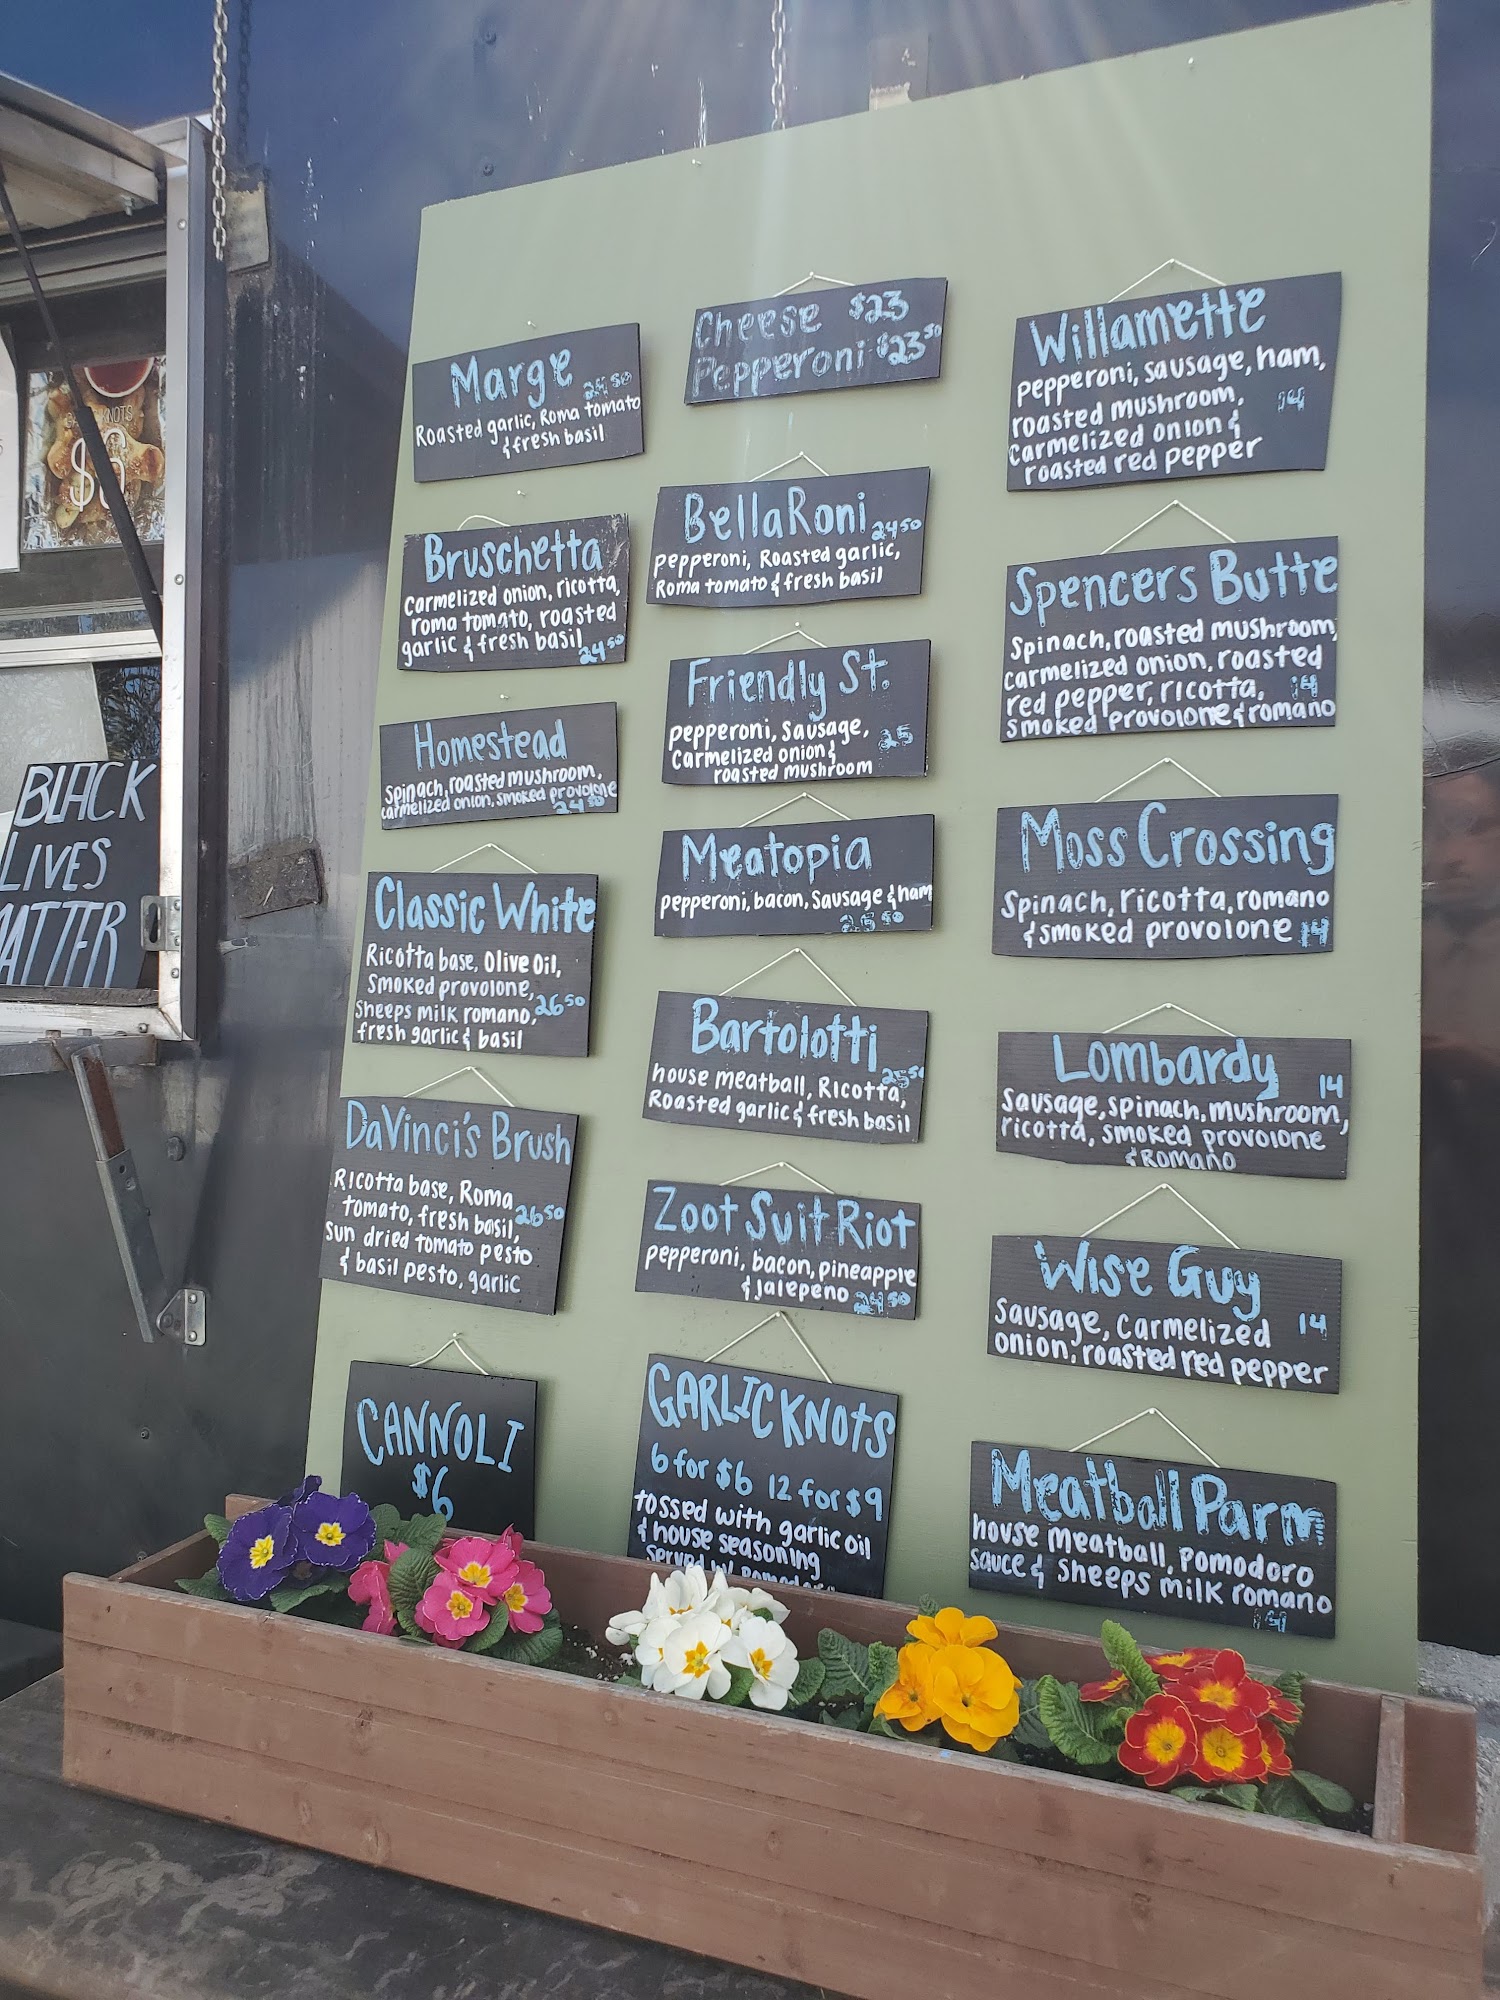 GARLIC KNOTS
$6
BLACK
LIVES
MATTER
Marge
24.50
Roasted garlic, Roma tomato
& fresh basil
Bruschetta
Carmelized onion, ricotta,
roma tomato, roasted
garlic & fresh basil 24.50
Homestead
Spinach, roasted mushroom,
carmelized onion, smoked provolone
24.50
Classic White
Ricotta base, Olive Oil,
Smoked provolone,
Sheeps milk romano, 26.50
fresh garlic & basil
DaVinci's Brush
Ricotta base, Roma
tomato, fresh basil, 26.50
sun dried tomato pesto
& basil pesto, garlic
CANNOLI
$6
Cheese $23
Pepperoni $23.50
BellaRoni 24.50
pepperoni, Roasted garlic,
Roma tomato & fresh basil
Friendly St.
pepperoni, Sausage, 25
Carmelized onion &
roasted mushroom
Meatopia
pepperoni, bacon, Sausage & ham
25.50
Bartolotti
25.50
house meatball, Ricotta,
Roasted garlic & fresh basil
Zoot Suit Riot
pepperoni, bacon, pineapple
& jalepeno 24.50
GARLIC KNOTS
6 for $6 12 for $9
tossed with garlic oil
& house seasoning
served w/ pomodoro
Willamette
pepperoni, sausage, ham,
roasted mushroom, 14
carmelized onion &
roasted red pepper
Spencers Butte
Spinach, roasted mushroom,
carmelized onion, roasted
red pepper, ricotta, 14
smoked provolone & romano
Moss Crossing
Spinach, ricotta, romano
& smoked provolone 14
Lombardy 14
Sausage, spinach, mushroom,
ricotta, smoked provolone
& Romano
Wise Guy
Sausage, carmelized 14
onion, roasted red pepper
Meatball Parm
house meatball, pomodoro
sauce & Sheeps milk romano
14